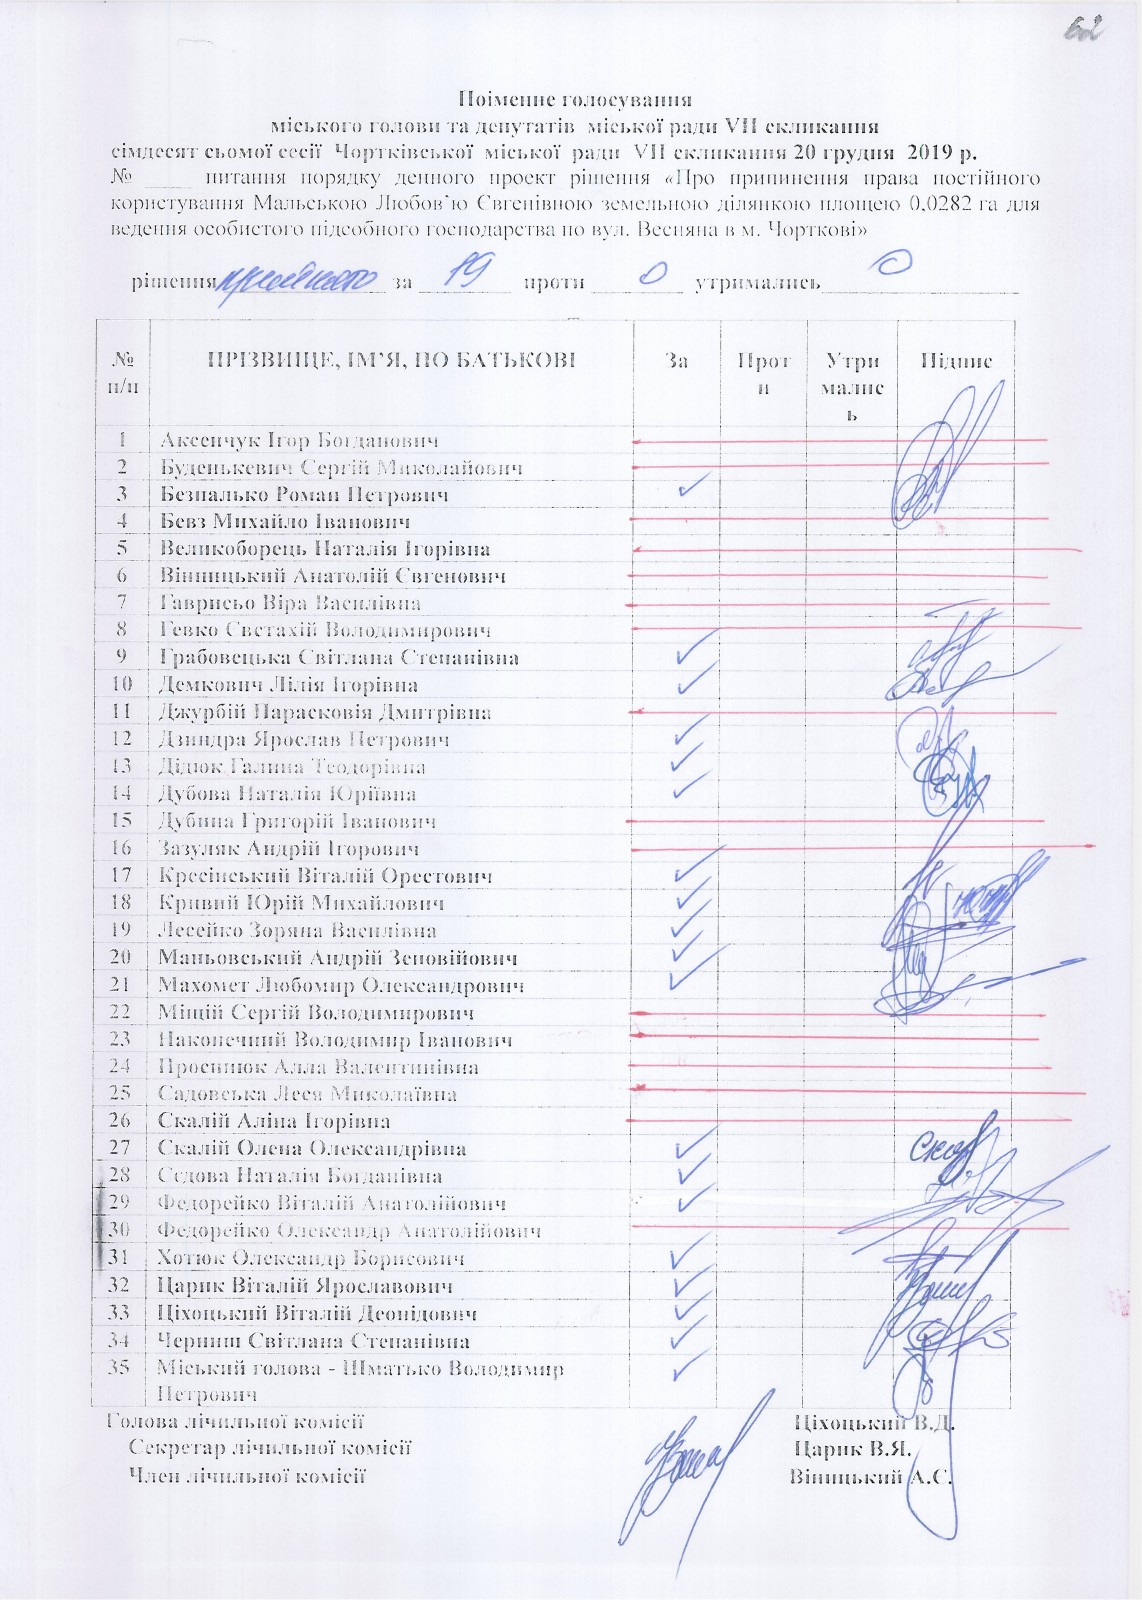 62
Поіменне голосування
міського голови та депутатів міської ради VII скликання
сімдесят сьомої сесії Чортківської міської ради VII скликання 20 грудня 2019 р.
№ ____ питання порядку денного проект рішення «Про припинення права постійного
користування Мальською Любов’ю Євгенівною земельною ділянкою площею 0,0282 га для
ведення особистого підсобного господарства по вул. Весняна в м. Чорткові»
рішення прийнято за 19 проти 0 утримались 0
№ п/п ПРІЗВИЩЕ, ІМ’Я, ПО БАТЬКОВІ За Проти Утрималис ь Підпис
1 Аксенчук Ігор Богданович
2 Буденькевич Сергій Миколайович
3 Безпалько Роман Петрович
4 Бевз Михайло Іванович
5 Великоборець Наталія Ігорівна
6 Вінницький Анатолій Євгенович
7 Гаврисьо Віра Василівна
8 Гевко Євстахій Володимирович
9 Грабовецька Світлана Степанівна
10 Демкович Лілія Ігорівна
11 Джурбій Парасковія Дмитрівна
12 Дзиндра Ярослав Петрович
13 Дідюк Галина Теодорівна
14 Дубова Наталія Юріївна
15 Дубина Григорій Іванович
16 Зазуляк Андрій Ігорович
17 Кресінський Віталій Орестович
18 Кривий Юрій Михайлович
19 Лесейко Зоряна Василівна
20 Маньовський Андрій Зеновійович
21 Махомет Любомир Олександрович
22 Міщій Сергій Володимирович
23 Наконечний Володимир Іванович
24 Просинюк Алла Валентинівна
25 Садовська Леся Миколаївна
26 Скалій Аліна Ігорівна
27 Скалій Олена Олександрівна
28 Сєдова Наталія Богданівна
29 Федорейко Віталій Анатолійович
30 Федорейко Олександр Анатолійович
31 Хотюк Олександр Борисович
32 Царик Віталій Ярославович
33 Ціхоцький Віталій Деонідович
34 Черниш Світлана Степанівна
35 Міський голова - Шматько Володимир
Петрович
Голова лічильної комісії Ціхоцький В.Д.
Секретар лічильної комісії Царик В.Я.
Член лічильної комісії Вінницький А.Є.